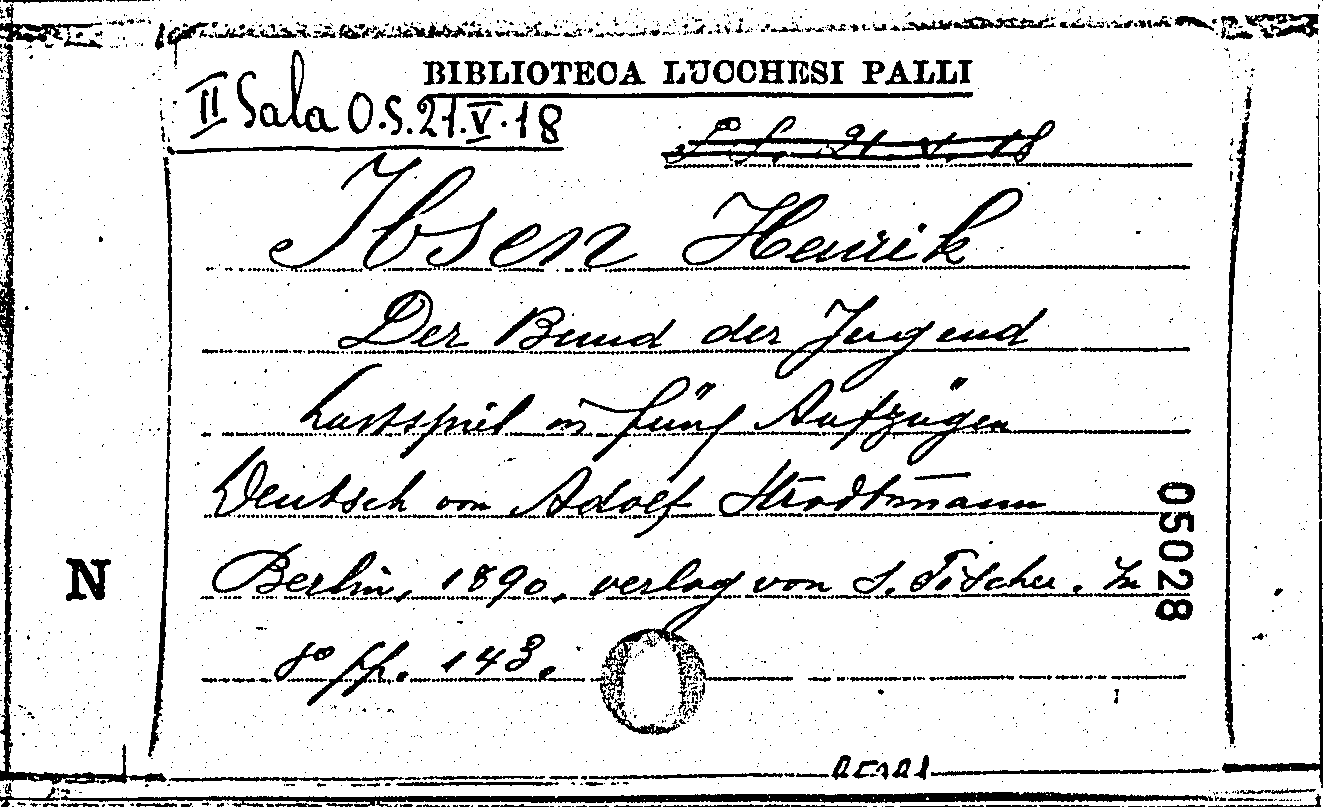 BIBLIOTECA LUCCHESI PALLI
II Sala O.S.21.V.18
S. 21. V. 18
Ibsen Henrik
Der Bund der Jugend
Lustspiel in fünf Aufzügen
Deutsch von Adolf Strodtmann
Berlin, 1890, verlag von S. Fischer. In
8° pp. 143.
N
05028